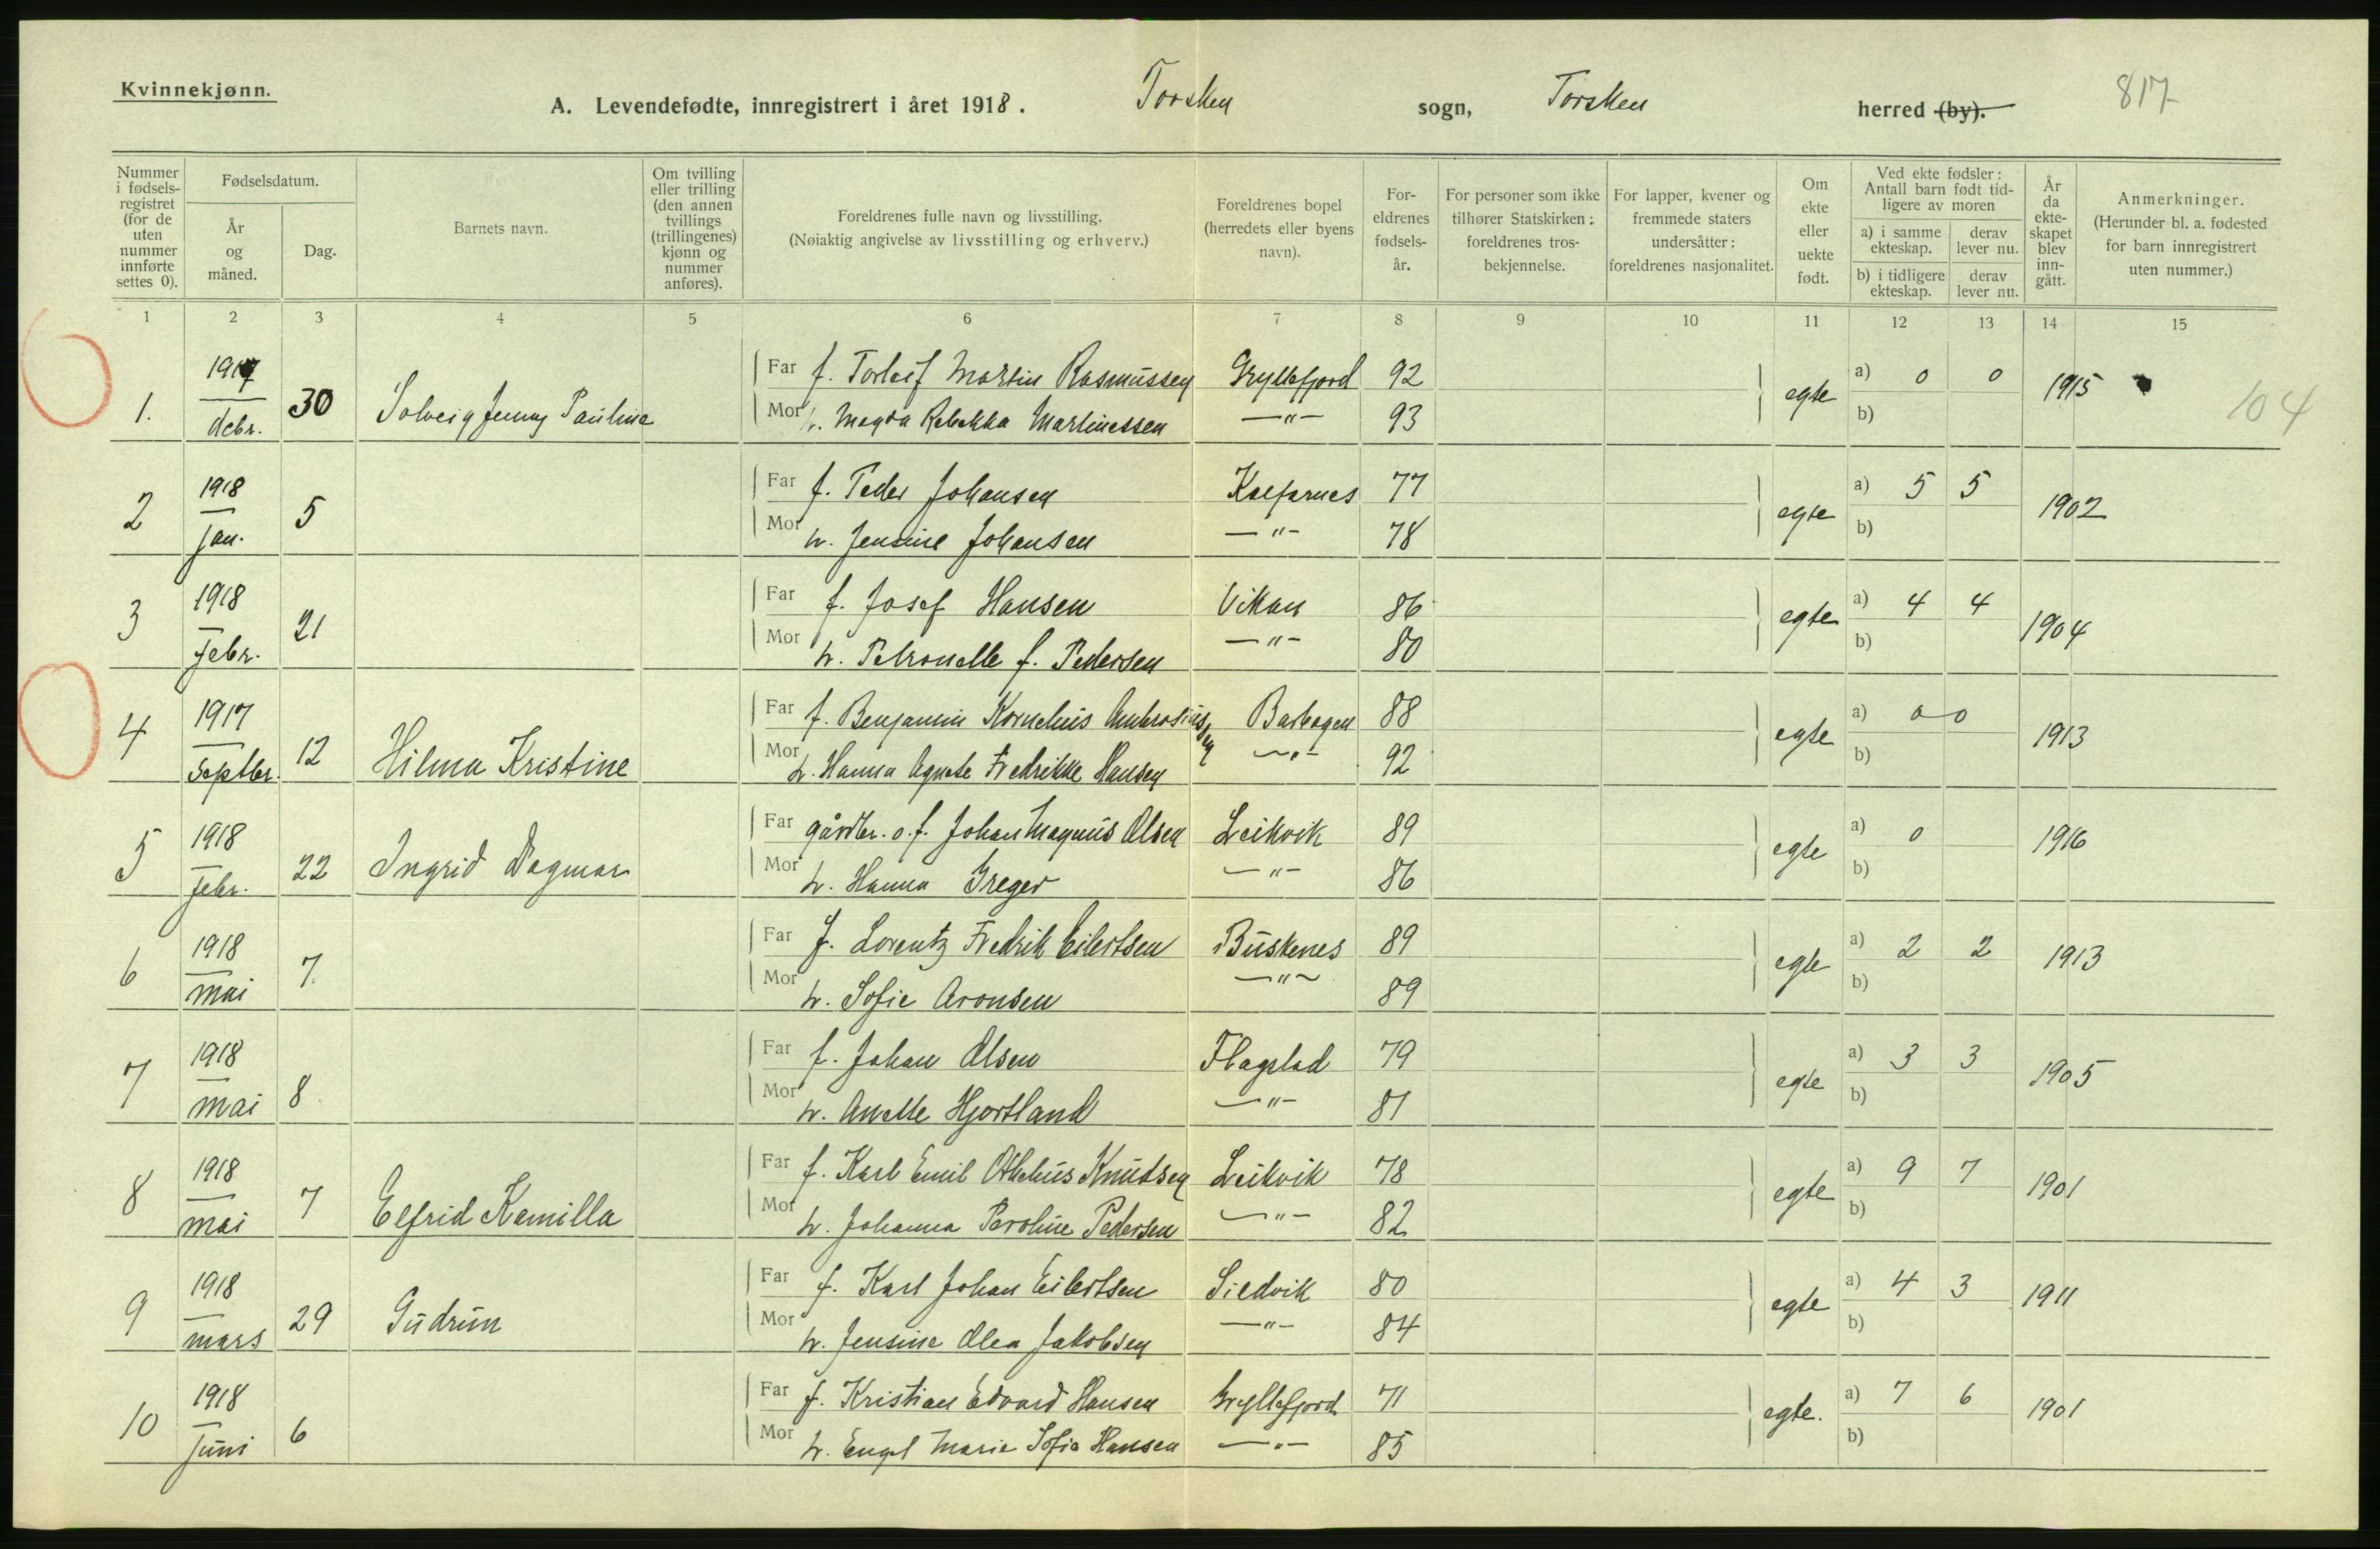 Kvinnekjønn.
A. Levendefødte, innregistrert i året 1918. Torsken sogn, Torsken herred (by). 817
Nummer i fødselsregistret (for de uten nummer innførte settes 0).
Fødselsdatum.
År og måned.
Dag.
Barnets navn.
Om tvilling eller trilling (den annen tvillings (trillingenes) kjønn og nummer anføres).
Foreldrenes fulle navn og livsstilling.
(Nøiaktig angivelse av livsstilling og erhverv.)
Foreldrenes bopel (herredets eller byens navn).
Foreldrenes fødselsår.
For personer som ikke tilhører Statskirken: foreldrenes trosbekjennelse.
For lapper, kvener og fremmede staters undersåtter: foreldrenes nasjonalitet.
Om ekte eller uekte født.
Ved ekte fødsler: Antall barn født tidligere av moren
a) i samme ekteskap. derav lever nu.
b) i tidligere ekteskap. derav lever nu.
År da ekteskapet blev inngått.
Anmerkninger.
(Herunder bl. a. fødested for barn innregistrert uten nummer.)
1 2 3 4 5 6 7 8 9 10 11 12 13 14 15
1. 1917 debr. 30 Solveig Jenny Pauline Far f. Torleif Martin Rasmussen Gryllefjord 92 egte a) 0 0 1915 104
Mor h. Magda Rebekka Martinessen —"— 93 b)
2 1918 jan. 5 Far f. Peder Johansen Kalfarnes 77 egte a) 5 5 1902
Mor h. Jensine Johansen —"— 78 b)
3 1918 febr. 21 Far f. Josef Hansen Vikan 86 egte a) 4 4 1904
Mor h. Petronelle f. Pedersen —"— 80 b)
4 1917 septbr. 12 Hilma Kristine Far f. Benjamin Kornelius Ambrosiussen Barbogen 88 egte a) 0 0 1913
Mor h. Hanna Agnete Fredrikke Hansen —"— 92 b)
5 1918 febr. 22 Ingrid Dagmar Far gårdbr. o. f. Johan Magnus Olsen Leikvik 89 egte a) 0 1916
Mor h. Hanna Greger —"— 86 b)
6 1918 mai 7. Far f. Lorentz Fredrik Eilertsen Buskenes 89 egte a) 2 2 1913
Mor h. Sofie Aronsen —"— 89 b)
7 1918 mai 8 Far f. Johan Olsen Flagstad 79 egte a) 3 3 1905
Mor h. Anette Hjortland —"— 81 b)
8 1918 mai 7 Elfrid Kamilla Far f. Karl Emil Othelius Knudsen Leikvik 78 egte a) 9 7 1901
Mor h. Johanna Paroline Pedersen —"— 82 b)
9 1918 mars 29 Gudrun Far f. Karl Johan Eilertsen Sildvik 80 egte a) 4 3 1911
Mor h. Jensine Olea Jakobsen —"— 84 b)
10 1918 juni 6 Far f. Kristian Edvard Hansen Gryllefjord 71 egte. a) 7 6 1901
Mor h. Engel Marie Sofie Hansen —"— 85 b)